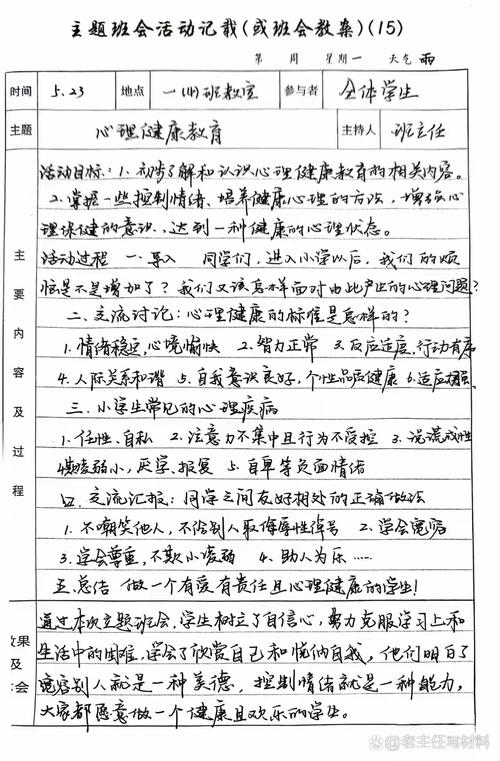 主题班会活动记载(或班会教案)(15)
第 周 星期一 天气 雨
时间 5.23 地点 一(11)班教室 参与者 全体学生
主题 心理健康教育 主持人 班主任
主要内容及过程
活动目标:1.初步了解和认识心理健康教育的相关内容。
2.掌握一些控制情绪、培养健康心理的方法,增强心
理保健的意识、达到一种健康的心理状态。
活动过程 一.导入 同学们,进入小学以后,我们的烦
恼是不是增加了?我们又该怎样面对由此产生的心理问题?
二、交流讨论:心理健康的标准是怎样的?
1.情绪稳定,心境愉快 2.智力正常 3.反应适度,行动有序
4.人际关系和谐 5.自我意识良好,个性品质健康 6.适应力强
三、小学生常见的心理疾病
1.任性、自私 2.注意力不集中且行为不受控 3.说谎成性
恃强弱小,厌学、报复 5.自卑等负面情绪
四.交流汇报:同学之间友好相处的正确做法
1.不嘲笑他人,不给别人取侮辱性绰号 2.学会宽容
3.学会尊重,不欺小凌弱 4.助人为乐……
五.总结 做一个有爱有责任且心理健康的学生!
效果及体会
通过本次主题班会,学生树立了自信心,努力克服学习上和
生活中的困难,学会了欣赏自己和悦纳自我,他们明白了
宽容别人就是一种美德,控制情绪就是一种能力,
大家都愿意做一个健康且欢乐的学生。
@老主任写材料